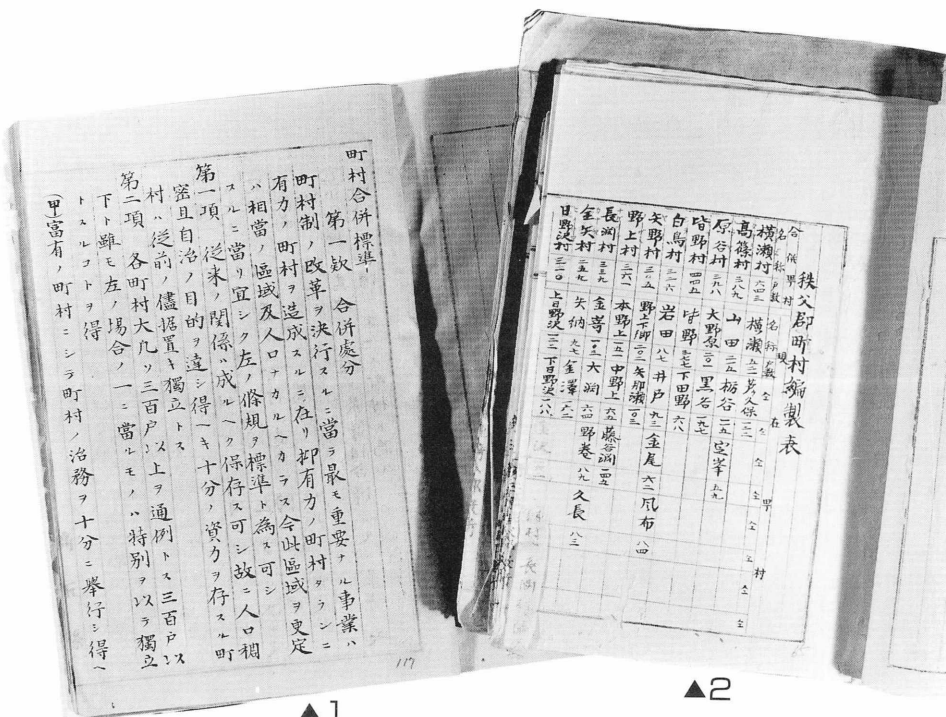 町村合併標準
第一欵 合併處分
町村制ノ改革ヲ決行スルニ當テ最モ重要ナル事業ハ
有力ノ町村ヲ造成スルニ在リ抑有力ノ町村タランニ
ハ相當ノ區域及人口ナカルヘカラス今此區域ヲ更定
スルニ當リ宜シク左ノ條規ヲ標準ト為ス可シ
第一項 従来ノ関係ハ成ルヘク保存ス可シ故ニ人口稠
密且自治ノ目的ヲ達シ得ヘキ十分ノ資力ヲ存スル町
村ハ従前ノ儘据置キ獨立トス
第二項 各町村大凡ソ三百戸以上ヲ通例トス三百戸以
下ト雖モ左ノ場合ノ一ニ當ルモノハ特別ヲ以テ獨立
トスルコトヲ得
(甲富有ノ町村ニシテ町村ノ治務ヲ十分ニ舉行シ得ヘ
117
▲1
秩父郡町村編製表
名称 戸数 名称 戸数
横瀬村 六四三 横瀬 芦久保
高篠村 三八九 山田 二一五 栃谷 一一五 定峯 五九
原谷村 三九八 大野原 二〇一 黒谷 一九七
皆野村 四四五 皆野 下田野 六八
白鳥村 三一六 岩田 八七 井戸 九三 金尾 六二 風布 八四
矢野村 三〇五 野上下郷 二〇二 矢那瀬 一〇三
野上村 三六一 本野上 一五一 中野上 六五 藤谷淵 一四五
長渕村 三三九 金嵜 一〇三 大渕 六四 野巻 八九 久長 八三
金矢村 二五九 矢納 九七 金澤
日野沢村 三一〇 上日野沢 下日野沢
▲2